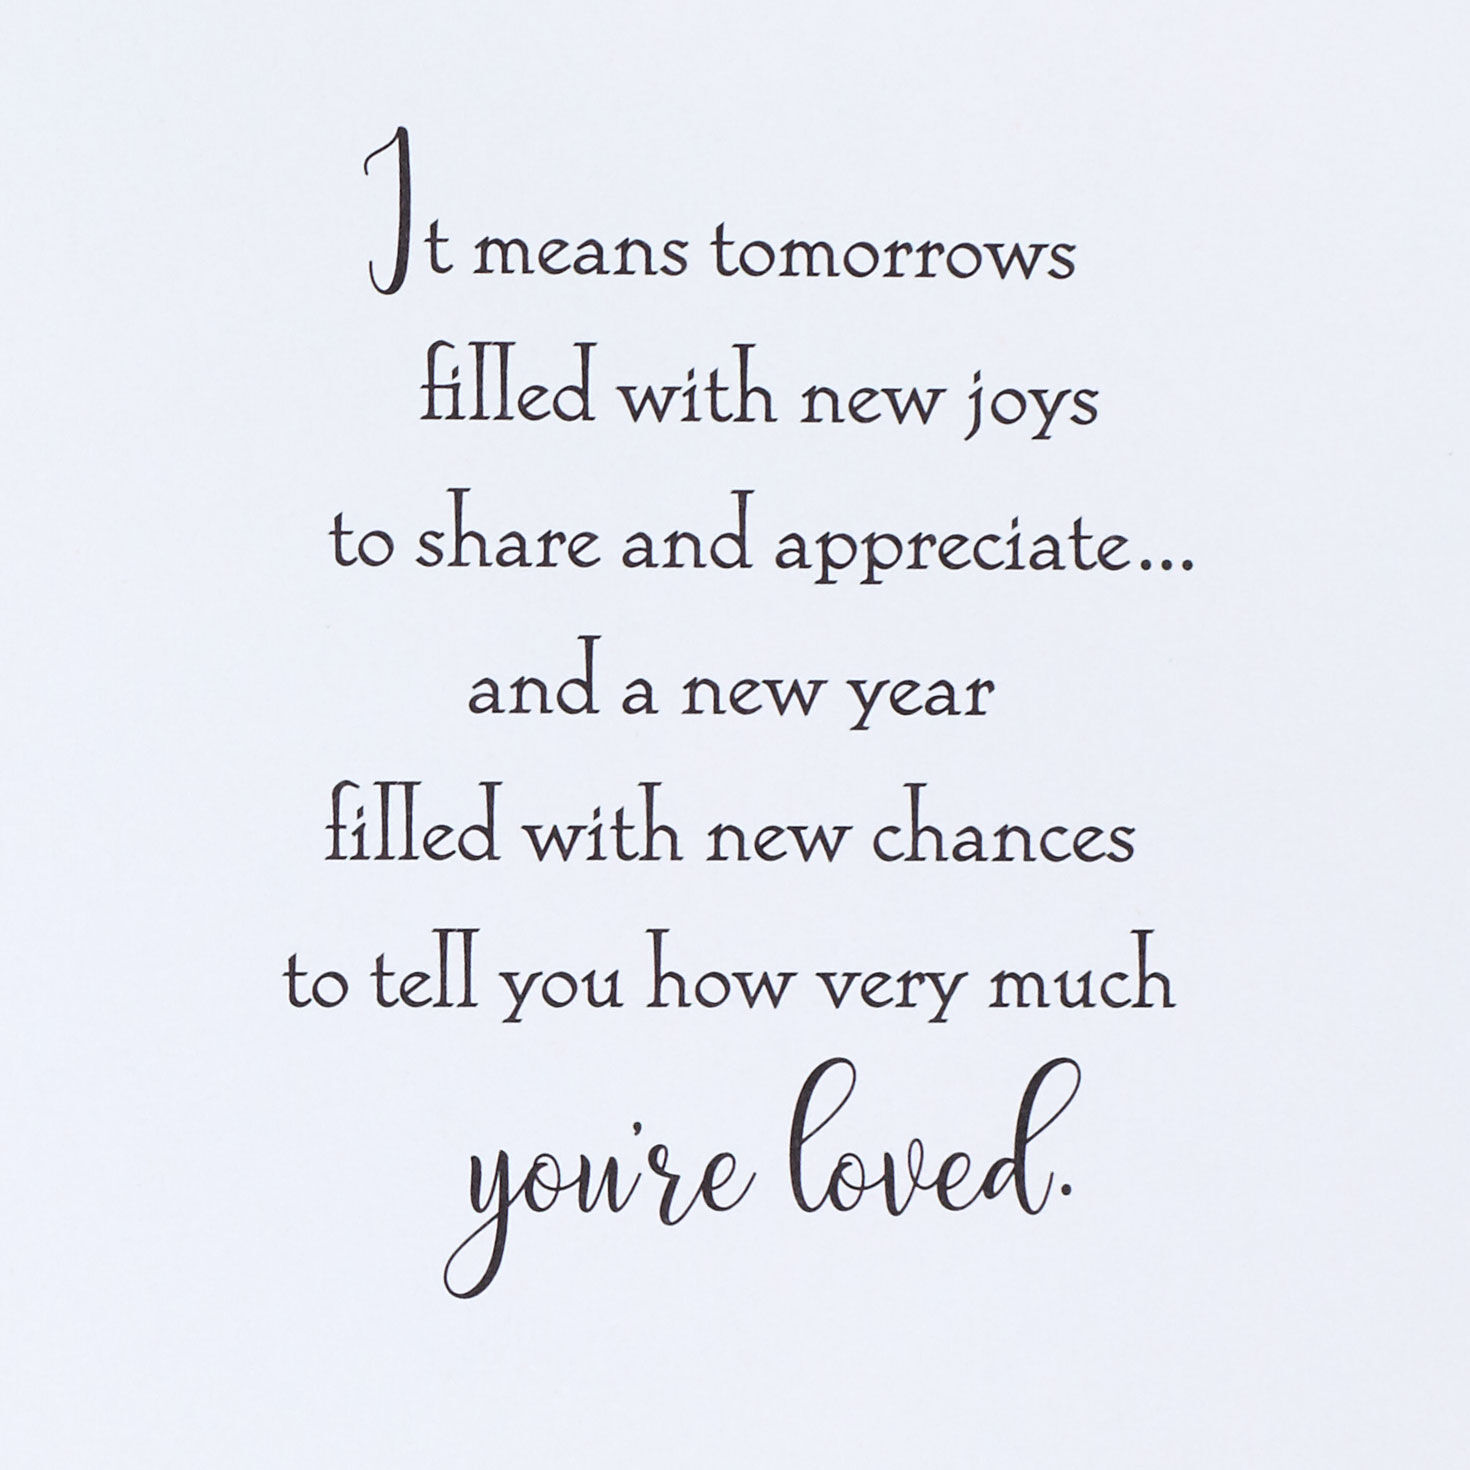 It means tomorrows
filled with new joys
to share and appreciate...
and a new year
filled with new chances
to tell you how very much
you're loved.